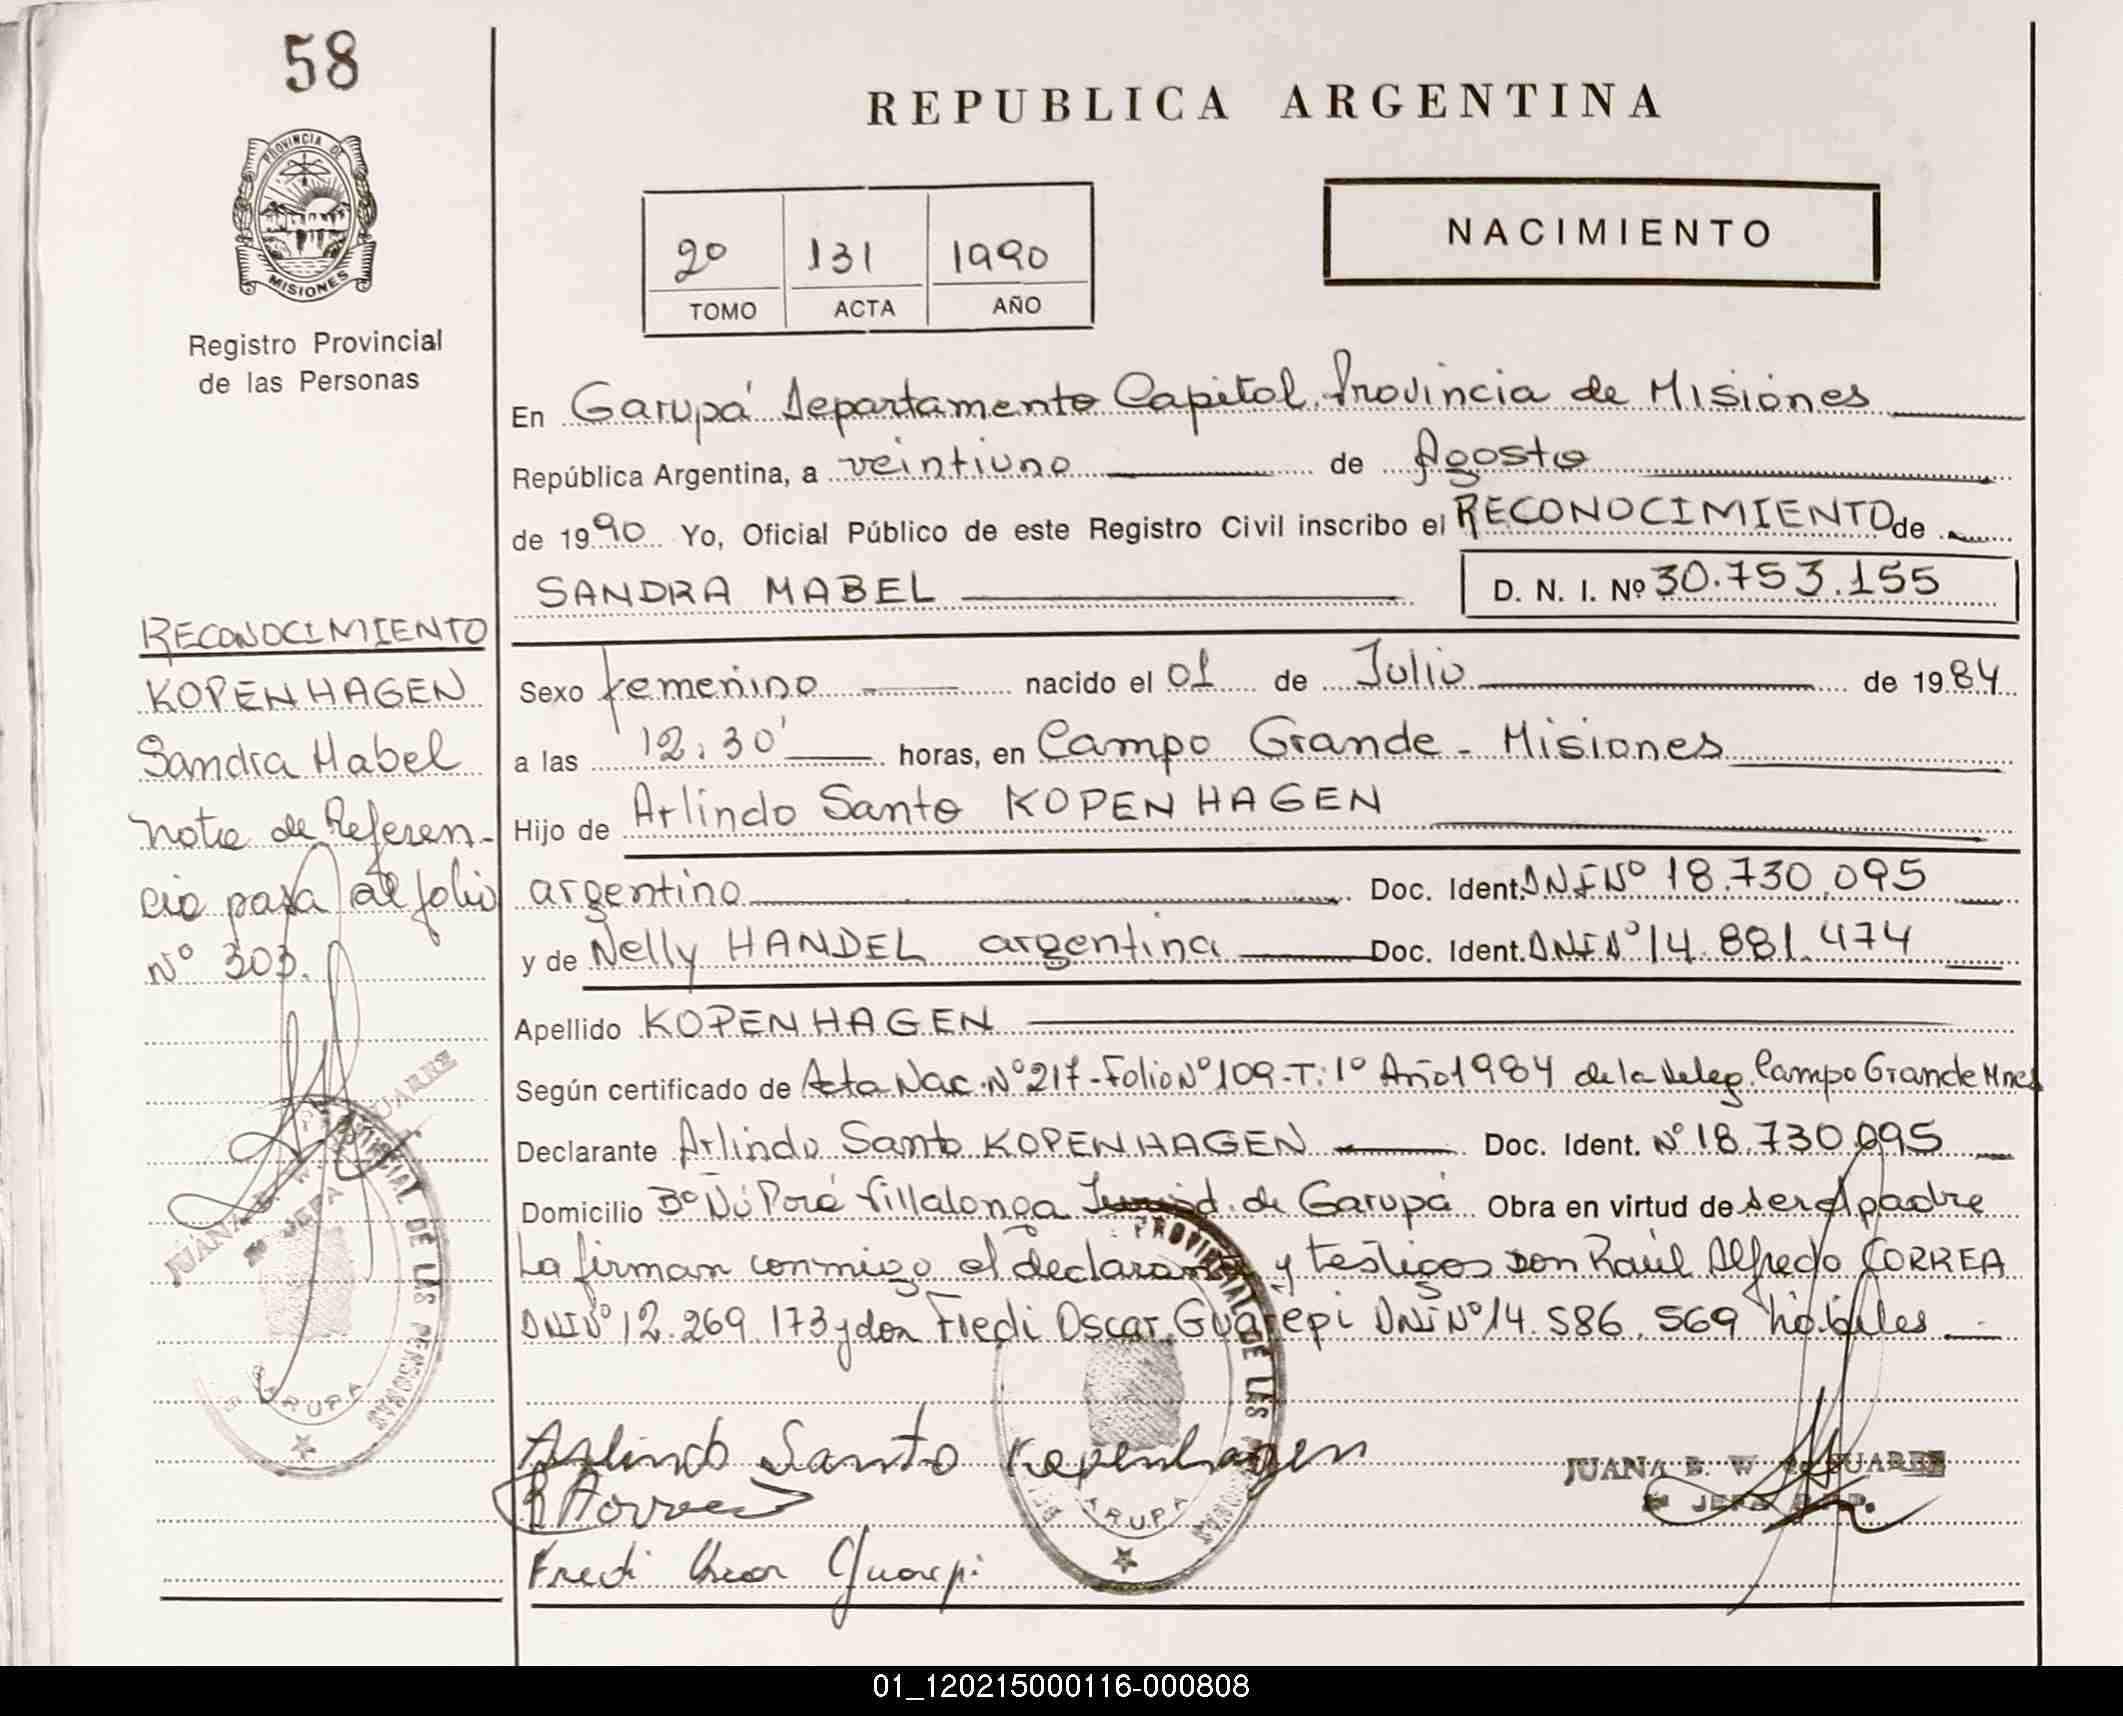 58
PROVINCIA DE
MISIONES
Registro Provincial
de las Personas
REPUBLICA ARGENTINA
NACIMIENTO
2º 131 1990
TOMO ACTA AÑO
En Garupá Departamento Capital. Provincia de Misiones
República Argentina, a veintiuno de Agosto
de 1990 Yo, Oficial Público de este Registro Civil inscribo el RECONOCIMIENTO de
SANDRA MABEL D. N. I. Nº 30.753.155
Sexo femenino nacido el 01 de Julio de 1984
a las 12:30' horas, en Campo Grande - Misiones
Hijo de Arlindo Santo KOPENHAGEN
argentino Doc. Ident. DNI Nº 18.730.095
y de Nelly HANDEL argentina Doc. Ident. DNI Nº 14.881.474
Apellido KOPENHAGEN
Según certificado de Acta Nac. Nº 217-Folio Nº 109-T: 1º Año 1984 de la Deleg. Campo Grande Mnes
Declarante Arlindo Santo KOPENHAGEN Doc. Ident. Nº 18.730.095
Domicilio Bº Ñú Porá Villalonga de Garupá Obra en virtud de ser el padre
La firman conmigo el declarante y testigos Don Raúl Alfredo CORREA
DNI Nº 12.269.173 y don Fredi Oscar Guarepi DNI Nº 14.586.569 hábiles
Arlindo Santo Kopenhagen
Fredi Oscar Guarepi
JUANA B. W. SUAREZ
JEFA
PROVINCIAL DE LAS PERSONAS
GARUPA
RECONOCIMIENTO
KOPENHAGEN
Sandra Mabel
Nota de Referen-
cia pasa al folio
Nº 303.
JUANA B. W. SUAREZ
JEFA
PROVINCIAL DE LAS PERSONAS
GARUPA
01_120215000116-000808